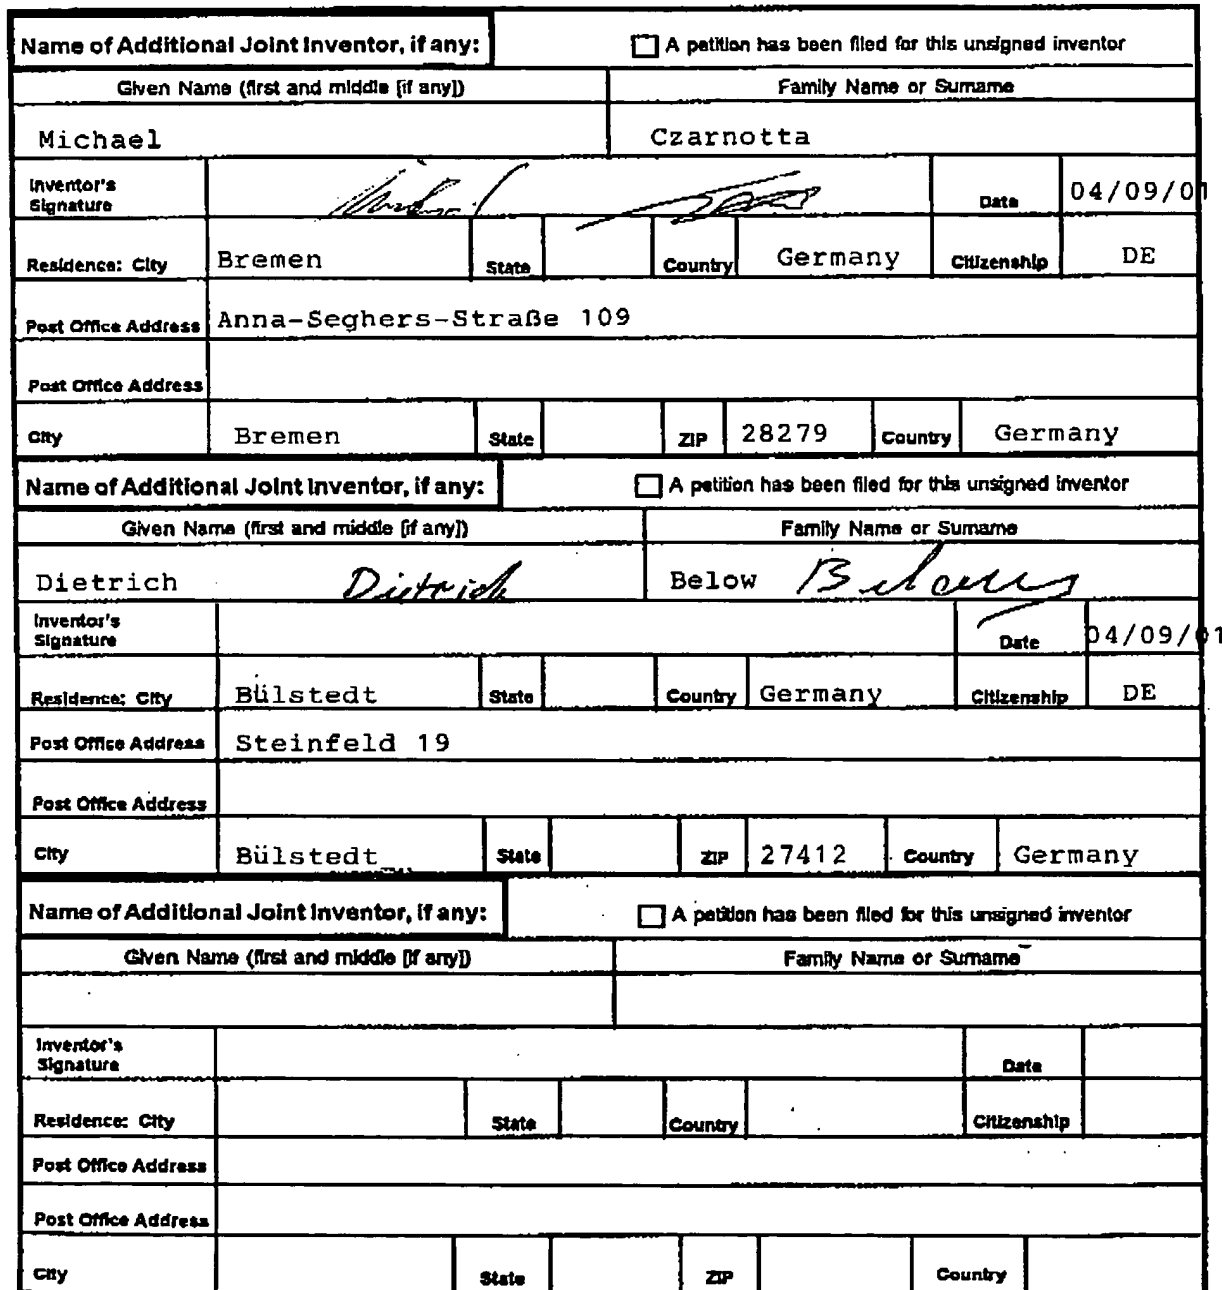 Name of Additional Joint Inventor, if any: A petition has been filed for this unsigned inventor
Given Name (first and middle [if any]) Family Name or Surname
Michael Czarnotta
Inventor's Signature Date 04/09/01
Residence: City Bremen State Country Germany Citizenship DE
Post Office Address Anna-Seghers-Straße 109
Post Office Address
City Bremen State ZIP 28279 Country Germany
Name of Additional Joint Inventor, if any: A petition has been filed for this unsigned inventor
Given Name (first and middle [if any]) Family Name or Surname
Dietrich Dietrich Below
Inventor's Signature Date 04/09/01
Residence: City Bülstedt State Country Germany Citizenship DE
Post Office Address Steinfeld 19
Post Office Address
City Bülstedt State ZIP 27412 Country Germany
Name of Additional Joint Inventor, if any: A petition has been filed for this unsigned inventor
Given Name (first and middle [if any]) Family Name or Surname
Inventor's Signature Date
Residence: City State Country Citizenship
Post Office Address
Post Office Address
City State ZIP Country